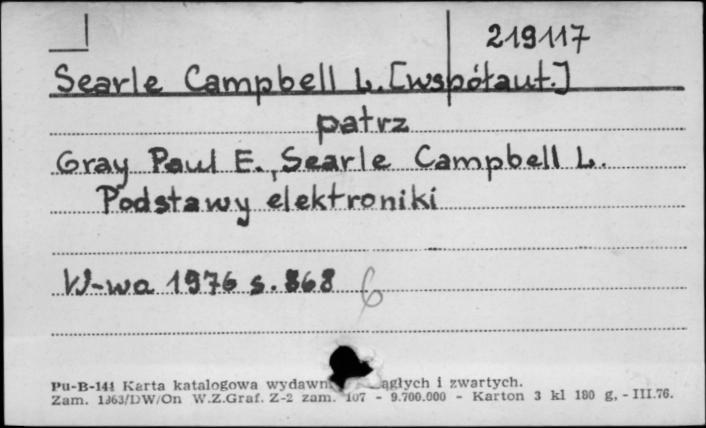 219117
Searle Campbell L. [współaut.]
patrz
Gray Paul E., Searle Campbell L.
Podstawy elektroniki
W-wa 1976 s. 868
6
Pu-B-144 Karta katalogowa wydawn ągłych i zwartych.
Zam. 1363/DW/On W.Z.Graf. Z-2 zam. 107 - 9.700.000 - Karton 3 kl 180 g. - III.76.